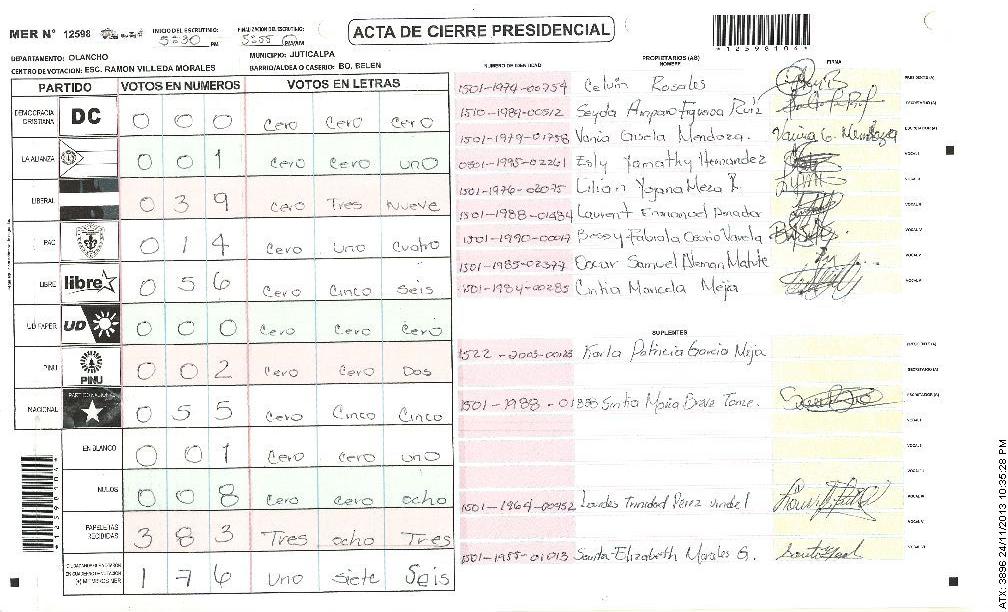 MER Nº 12598
INICIO DEL ESCRUTINIO: 5:30 PM
FINALIZACION DEL ESCRUTINIO: 5:55 PM
ACTA DE CIERRE PRESIDENCIAL
*12598104*
DEPARTAMENTO: OLANCHO
MUNICIPIO: JUTICALPA
CENTRO DE VOTACION: ESC. RAMON VILLEDA MORALES
BARRIO/ALDEA O CASERIO: BO, BELEN
PARTIDO VOTOS EN NUMEROS VOTOS EN LETRAS
DEMOCRACIA CRISTIANA DC 0 0 0 Cero Cero Cero
LA ALIANZA 0 0 1 Cero Cero uno
LIBERAL 0 3 9 Cero Tres Nueve
PAC 0 1 4 Cero uno cuatro
LIBRE libre 0 5 6 Cero Cinco Seis
UD FAPER UD 0 0 0 Cero Cero Cero
PINU PINU 0 0 2 Cero Cero Dos
NACIONAL PARTIDO NACIONAL 0 5 5 Cero Cinco Cinco
EN BLANCO 0 0 1 Cero Cero uno
NULOS 0 0 8 Cero Cero ocho
PAPELETAS RECIBIDAS 3 8 3 Tres ocho Tres
(+) MIEMBROS MER 1 7 6 uno Siete Seis
*12598104*
NUMERO DE IDENTIDAD PROPIETARIOS (AS) NOMBRE FIRMA
1501-1974-00754 Celvin Rosales PRESIDENTE (A)
1510-1989-00512 Seyda Amparo Figueroa Ruiz SECRETARIO (A)
1501-1979-01758 Vania Gisela Mendoza. Vania G. Mendoza ESCRUTADOR (A)
0801-1995-02261 Esly Yamathy Hernandez VOCAL I
1501-1976-02075 Lilian Yojana Meza R. VOCAL II
1501-1988-01484 Laurent Emmanuel Amador
1501-1990-0047 Bessy Fabiola Osorio Varela VOCAL IV
1501-1985-02377 Oscar Samuel Aleman Matute VOCAL V
1501-1984-00285 Cintia Maricela Mejia
SUPLENTES
1522-2003-00123 Karla Patricia Garcia Mejia PRESIDENTE (A)
SECRETARIO (A)
1501-1988-01885 Sintia Maria Breve Torre. ESCRUTADOR (A)
VOCAL I
VOCAL II
1501-1964-00452 Lourdes Trinidad Perez VOCAL IV
VOCAL V
1501-1955-01013 Santa Elizabeth Morales G.
ATX: 3896 24/11/2013 10:35:28 PM